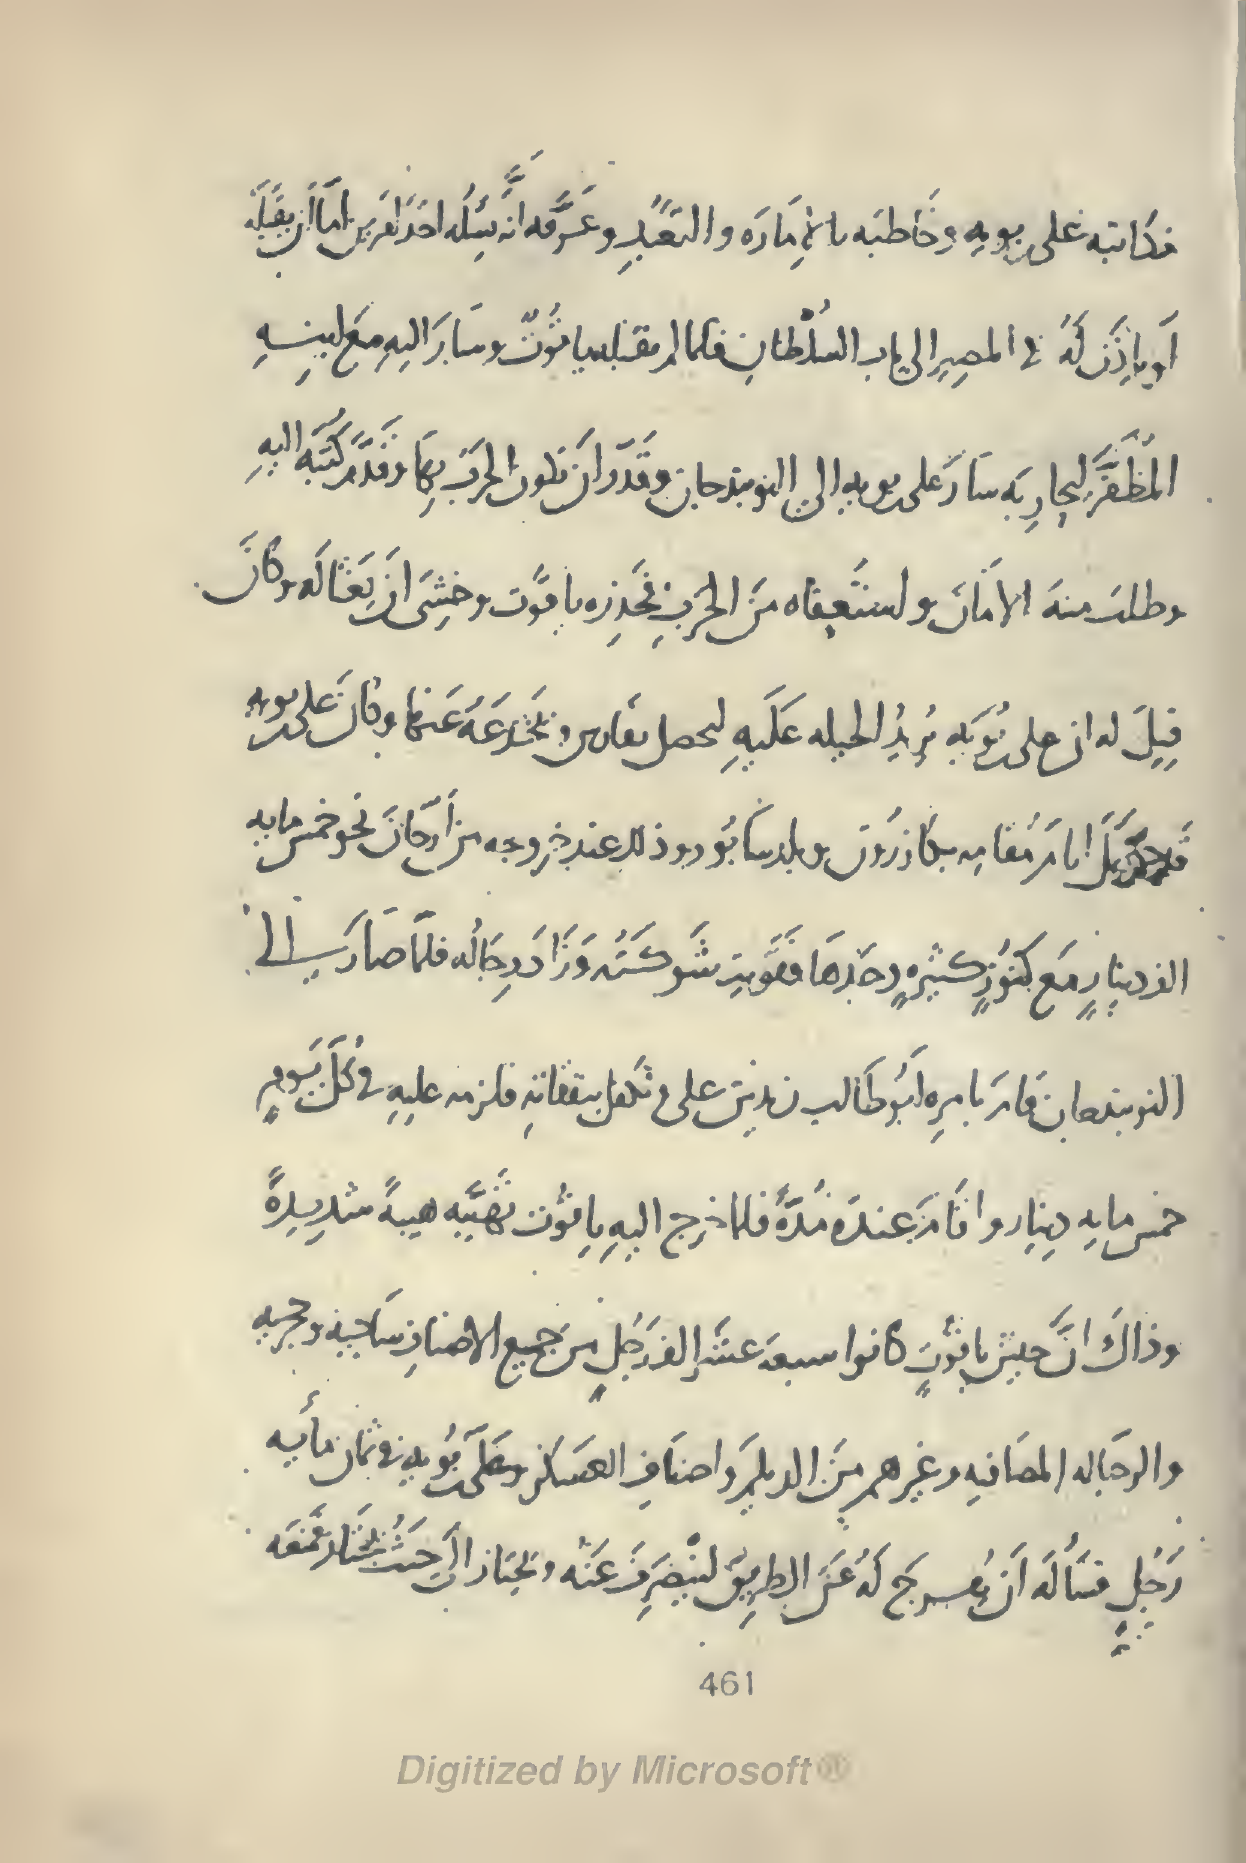 فكاتبه على بويه وخَاطبَه بالإمَارَه والتعَبّدِ وعَرَّفه انّه يَسْئلُه احدَ امَرين امّا أن يقبَلَه
اَو ياذَن لَهُ في المصِيرِ الى باب السُلْطانِ فلما لم يقبله ياقوُتّ وسَارَ اليهِ مَع ابنِهِ
المُظَفَّر ليحاربَه سَارَ على بويه الى النوبندجان وقَدّرَ ان تكون الحربُ بهَا وقدَّمَ كُتبَه اليهِ
وطلبَ منهَ الامَانَ واستَعفاه مَن الحَربِ فحَذِره ياقوَّت وخشِىَ ان يَغتَالَه وكَانَ
قِيلَ له ان على بُوَيَه يُريدُ الحيله عَلَيهِ ليحصل بفَارس ويَخْدَعَهُ عَنهَا وكانَ على بويه
اَيامَ مُقامِه بكازرُون وبلد سَابُور وذلك عند خروجه من أَرّجَانَ نَحو خمس مايه
الف دينَارٍ مَع كنوُزٍ كثيَرهٍ وجَدهَا فقَوّيَت شَوكَتُه وَزَادَ رِجَالُه فلمّا صَارَ الى
النوبندجان قامَ بامرِه اَبُو طَالب زيد بن على وتكفل بنفقاتِه فلزمه عليهِ في كُلّ يَومٍ
خمس مايه دينار واقَامَ عندَه مُدّةً فلما خرج اليهِ ياقُوُت تَهَيَّبه هيبةً شدِيدِةً
وذاكَ انَّ جيش ياقُوتٍ كانوا سبعه عشَر الف رَجُلٍ منَ جميع الاصنافِ سَاجيه وحجريه
والرجَاله المصَافيه وغيرهم مِنَ الديلمِ وَاصناف العسكر وعَلَى بُويه في ثمان مأيه
رَجُلٍ فسَأَلَه اَن يُفرجَ لَهُ عَن الطرِيق لينصَرِفَ عَنه ويجتاز الى حَيثُ يختار فمَنعَه
461
Digitized by Microsoft®